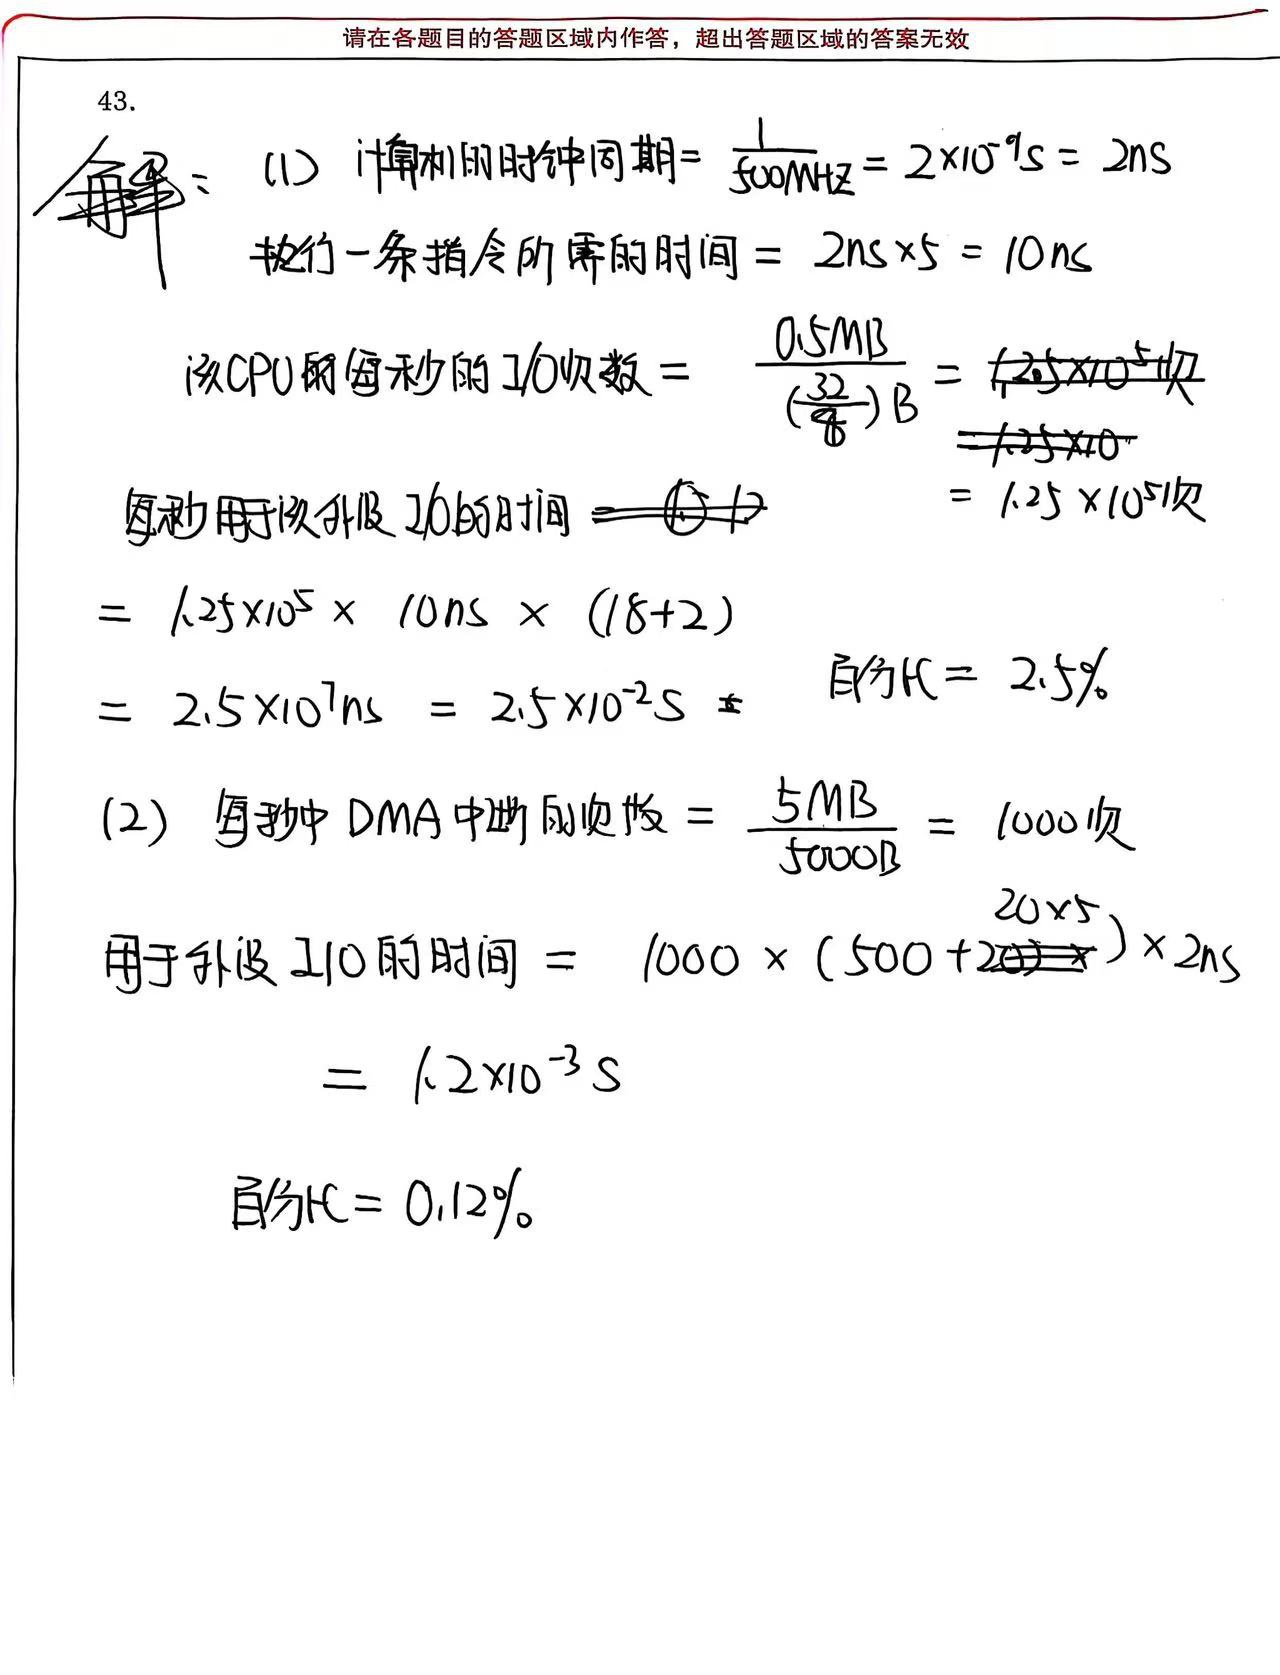 请在各题目的答题区域内作答，超出答题区域的答案无效
43.
解： (1) 计算机的时钟周期 = 1/500MHZ = 2×10⁻⁹s = 2ns
执行一条指令所需的时间 = 2ns×5 = 10ns
该CPU的每秒的I/O次数 = 0.5MB/(32/8)B = 1.25×10⁵次
= 1.25×10
= 1.25×10⁵次
每秒用于该外设I/O的时间
= 1.25×10⁵ × 10ns × (18+2)
= 2.5×10⁷ns = 2.5×10⁻²S 百分比 = 2.5%
(2) 每秒中DMA中断的次数 = 5MB/5000B = 1000次
用于外设I/O的时间 = 1000 × (500+20×5) × 2ns
= 1.2×10⁻³ S
百分比 = 0.12%